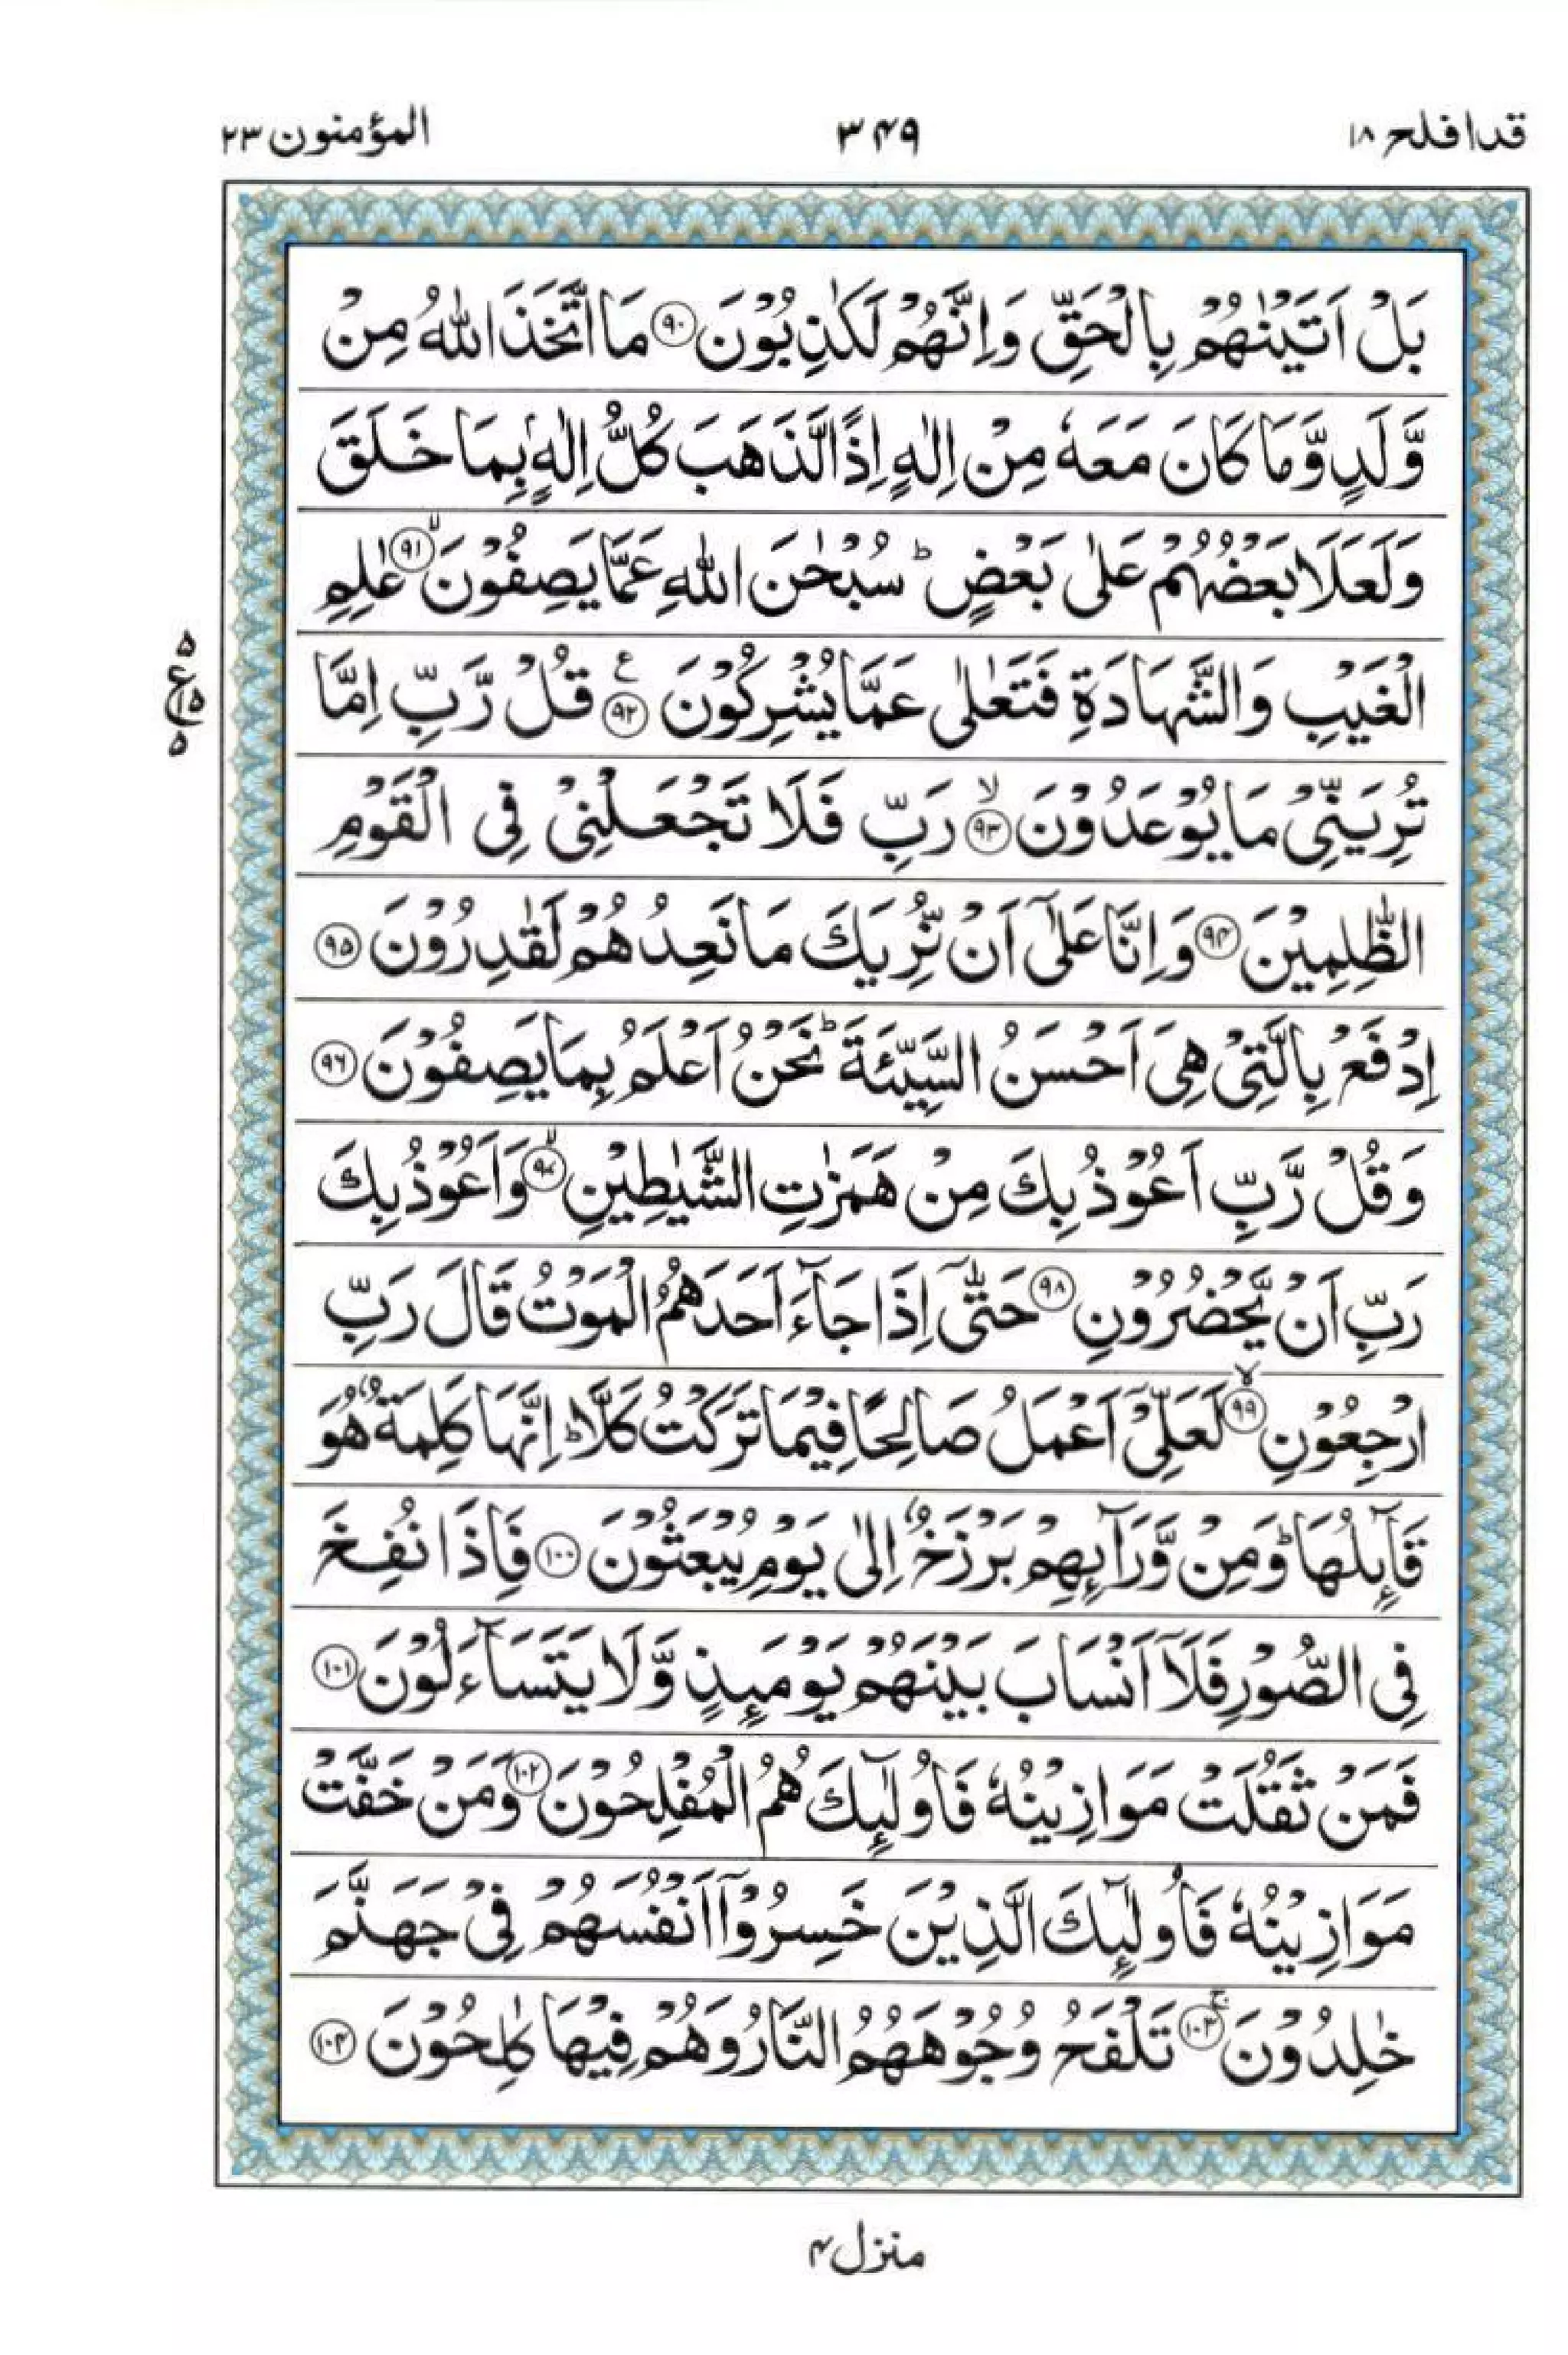 قد افلح ۱۸
۳۴۹
المؤمنون ۲۳
بَلْ اَتَيْنٰهُمْ بِالْحَقِّ وَاِنَّهُمْ لَكٰذِبُوْنَ ۹۰ مَا اتَّخَذَ اللّٰهُ مِنْ
وَّلَدٍ وَّمَا كَانَ مَعَهٗ مِنْ اِلٰهٍ اِذًا لَّذَهَبَ كُلُّ اِلٰهٍۢ بِمَا خَلَقَ
وَلَعَلَا بَعْضُهُمْ عَلٰى بَعْضٍ ؕ سُبْحٰنَ اللّٰهِ عَمَّا يَصِفُوْنَ ۙ۹۱ عٰلِمِ
الْغَيْبِ وَالشَّهَادَةِ فَتَعٰلٰى عَمَّا يُشْرِكُوْنَ ۹۲ ع قُلْ رَّبِّ اِمَّا
تُرِيَنِّيْ مَا يُوْعَدُوْنَ ۙ۹۳ رَبِّ فَلَا تَجْعَلْنِيْ فِى الْقَوْمِ
الظّٰلِمِيْنَ ۹۴ وَاِنَّا عَلٰٓى اَنْ نُّرِيَكَ مَا نَعِدُهُمْ لَقٰدِرُوْنَ ۹۵
اِدْفَعْ بِالَّتِيْ هِيَ اَحْسَنُ السَّيِّئَةَ ؕ نَحْنُ اَعْلَمُ بِمَا يَصِفُوْنَ ۹۶
وَقُلْ رَّبِّ اَعُوْذُ بِكَ مِنْ هَمَزٰتِ الشَّيٰطِيْنِ ۙ۹۷ وَاَعُوْذُ بِكَ
رَبِّ اَنْ يَّحْضُرُوْنِ ۹۸ حَتّٰٓى اِذَا جَآءَ اَحَدَهُمُ الْمَوْتُ قَالَ رَبِّ
ارْجِعُوْنِ ۙ۹۹ لَعَلِّيْٓ اَعْمَلُ صَالِحًا فِيْمَا تَرَكْتُ كَلَّا ؕ اِنَّهَا كَلِمَةٌ هُوَ
قَآئِلُهَا ؕ وَمِنْ وَّرَآئِهِمْ بَرْزَخٌ اِلٰى يَوْمِ يُبْعَثُوْنَ ۱۰۰ فَاِذَا نُفِخَ
فِى الصُّوْرِ فَلَآ اَنْسَابَ بَيْنَهُمْ يَوْمَئِذٍ وَّلَا يَتَسَآءَلُوْنَ ۱۰۱
فَمَنْ ثَقُلَتْ مَوَازِيْنُهٗ فَاُولٰٓئِكَ هُمُ الْمُفْلِحُوْنَ ۱۰۲ وَمَنْ خَفَّتْ
مَوَازِيْنُهٗ فَاُولٰٓئِكَ الَّذِيْنَ خَسِرُوْٓا اَنْفُسَهُمْ فِيْ جَهَنَّمَ
خٰلِدُوْنَ ۚ۱۰۳ تَلْفَحُ وُجُوْهَهُمُ النَّارُ وَهُمْ فِيْهَا كٰلِحُوْنَ ۱۰۴
۵
ع ۱۵
۵
منزل ۴